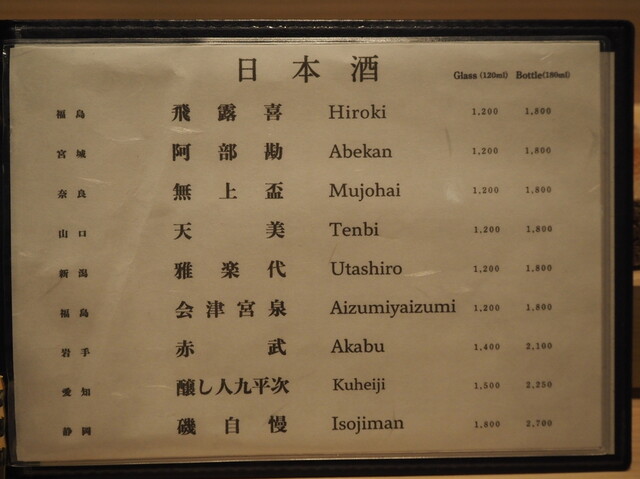 日本酒 Glass (120ml) Bottle(180ml)
福島 飛露喜 Hiroki 1,200 1,800
宮城 阿部勘 Abekan 1,200 1,800
奈良 無上盃 Mujohai 1,200 1,800
山口 天美 Tenbi 1,200 1,800
新潟 雅楽代 Utashiro 1,200 1,800
福島 会津宮泉 Aizumiyaizumi 1,200 1,800
岩手 赤武 Akabu 1,400 2,100
愛知 醸し人九平次 Kuheiji 1,500 2,250
静岡 磯自慢 Isojiman 1,800 2,700